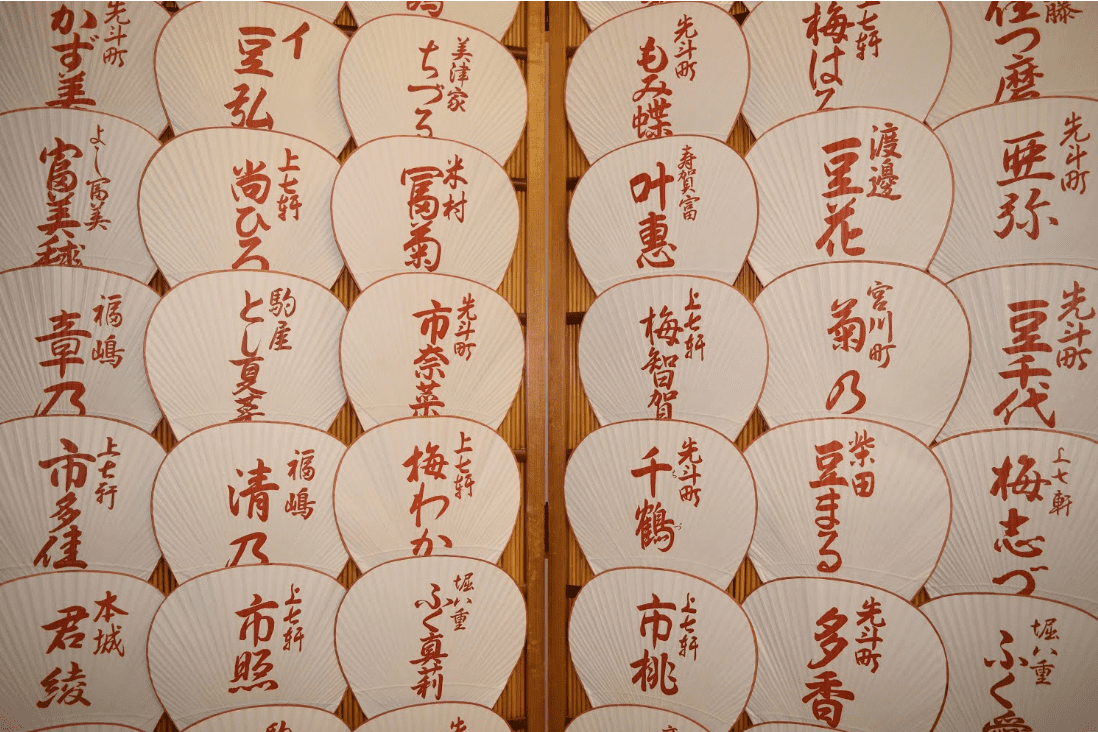 先斗町
かず美
イ
豆弘
美津家
ちづる
先斗町
もみ蝶
上七軒
梅は
佳つ磨
よし富美
富美毬
上七軒
尚ひろ
米村
冨菊
寿賀富
叶惠
渡邊
豆花
先斗町
亜弥
福嶋
章乃
駒屋
とし夏菜
先斗町
市奈菜
上七軒
梅智賀
宮川町
菊乃
先斗町
豆千代
上七軒
市多佳
福嶋
清乃
上七軒
梅わか
先斗町
千鶴
柴田
豆まる
上七軒
梅志づ
本城
君綾
上七軒
市照
堀八重
ふく真莉
上七軒
市桃
先斗町
多香
堀八重
ふく愛